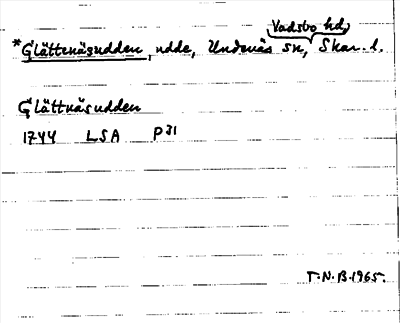 Vadsbo hd,
*Glättenäsudden, udde, Undenäs sn, Skar. l.
Glättnäsudden
1744 LSA P31
T.N.B.1965.